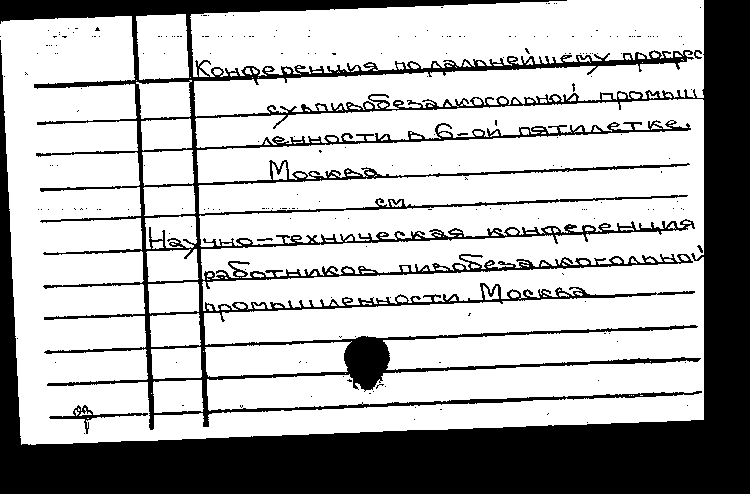 Конференция по дальнейшему прогрес
су в пивобезалкогольной промыш
ленности в 6-ой пятилетке.
Москва.
см.
Научно-техническая конференция
работников пивобезалкогольной
промышленности. Москва